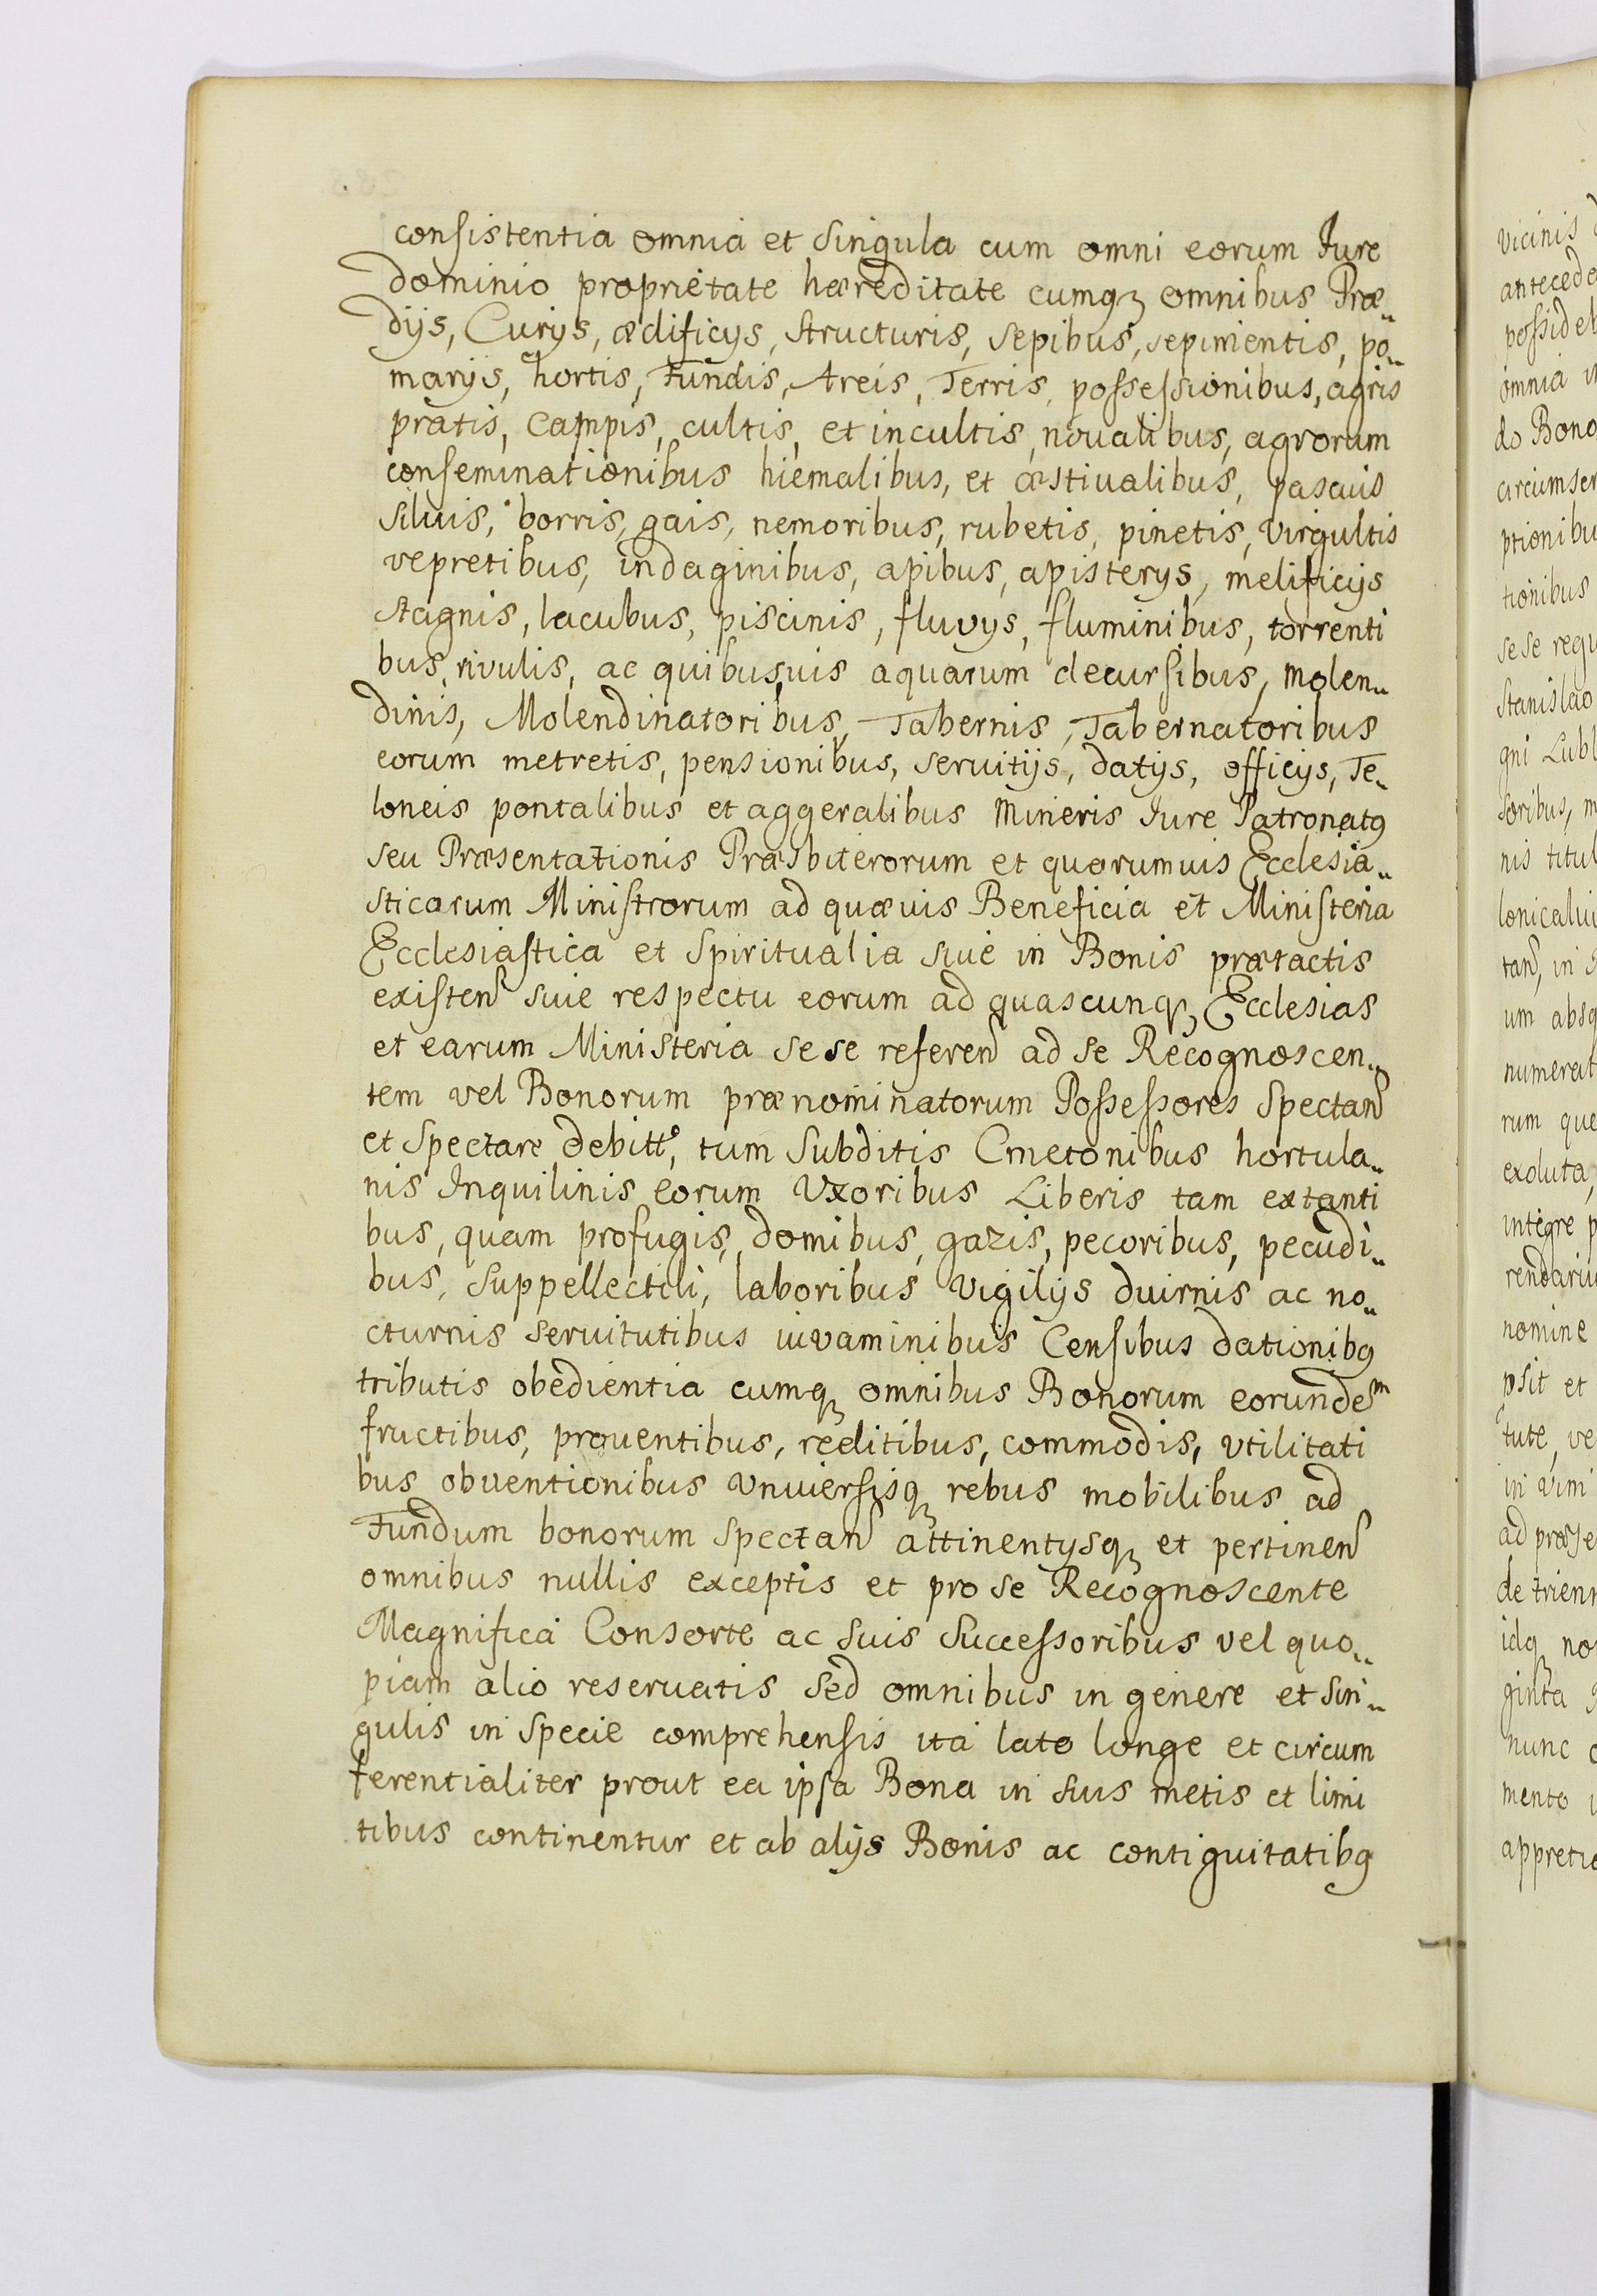 consistentia omnia et Singula cum omni eorum Iure
dominio proprietate hæreditate cumqꝫ omnibus Præ„
dijs, Curijs, ædificijs, structuris, sepibus, sepimentis, po„
marijs, hortis, Fundis, Areis, Terris, possessionibus, agris
pratis, Campis, cultis, et incultis, noualibus, agrorum
conseminationibus hiemalibus, et æstiualibus, pascuis
siluis, borris, gais, nemoribus, rubetis, pinetis, virgultis
vepretibus, indaginibus, apibus, apisterijs, melificijs
stagnis, lacubus, piscinis, fluvijs, fluminibus, torrenti
bus, rivulis, ac quibusuis aquarum decursibus, molen„
dinis, Molendinatoribus, Tabernis, Tabernatoribus
eorum metretis, pensionibus, seruitijs, datijs, officijs, Te„
loneis pontalibus et aggeralibus Mineris Iure Patronatꝯ
seu Præsentationis Præsbiterorum et quorumuis Ecclesia„
sticarum Ministrorum ad quævis Beneficia et Ministeria
Ecclesiastica et Spiritualia siue in Bonis prætactis
existen siue respectu eorum ad quascunqꝫ Ecclesias
et earum Ministeria sese referen ad se Recognoscen„
tem vel Bonorum prænominatorum Possessores Spectan
et Spectare debitt°, tum Subditis Cmetonibus hortula„
nis Inquilinis eorum Vxoribus Liberis tam extanti
bus, quam profugis, domibus, gazis, pecoribus, pecudi„
bus, Suppellectili, laboribus vigilijs duirnis ac no„
cturnis seruitutibus iuvaminibus Censibus dationibꝯ
tributis obedientia cumqꝫ omnibus Bonorum eorundeᵐ
fructibus, prouentibus, reditibus, commodis, vtilitati
bus obventionibus vniuersisqꝫ rebus mobilibus ad
Fundum bonorum spectan attinentijsqꝫ et pertinen
omnibus nullis exceptis et pro se Recognoscente
Magnifica Consorte ac suis successoribus vel quo„
piam alio reseruatis sed omnibus in genere et sin„
gulis in specie comprehensis ita late longe et circum
ferentialiter prout ea ipsa Bona in suis metis et limi
tibus continentur et ab alijs Bonis ac contiguitatibꝯ
vicinis
possidet
omnia
do Bono
ptionibu
tionibus
sese requ
Stanislao
gni Lubl
soribus, m
nis titul
tan, in
um absq
numerat
rum que
exoluta,
integre p
nomine
psit et
tute, ve
in vim
de trienn
idqꝫ no
ginta
nunc
mento
appretia